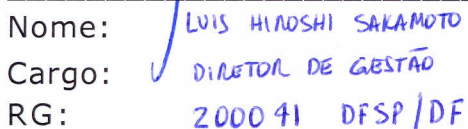 Nome: LUIS HIROSHI SAKAMOTO
Cargo: DIRETOR DE GESTÃO
RG: 200041 DFSP/DF